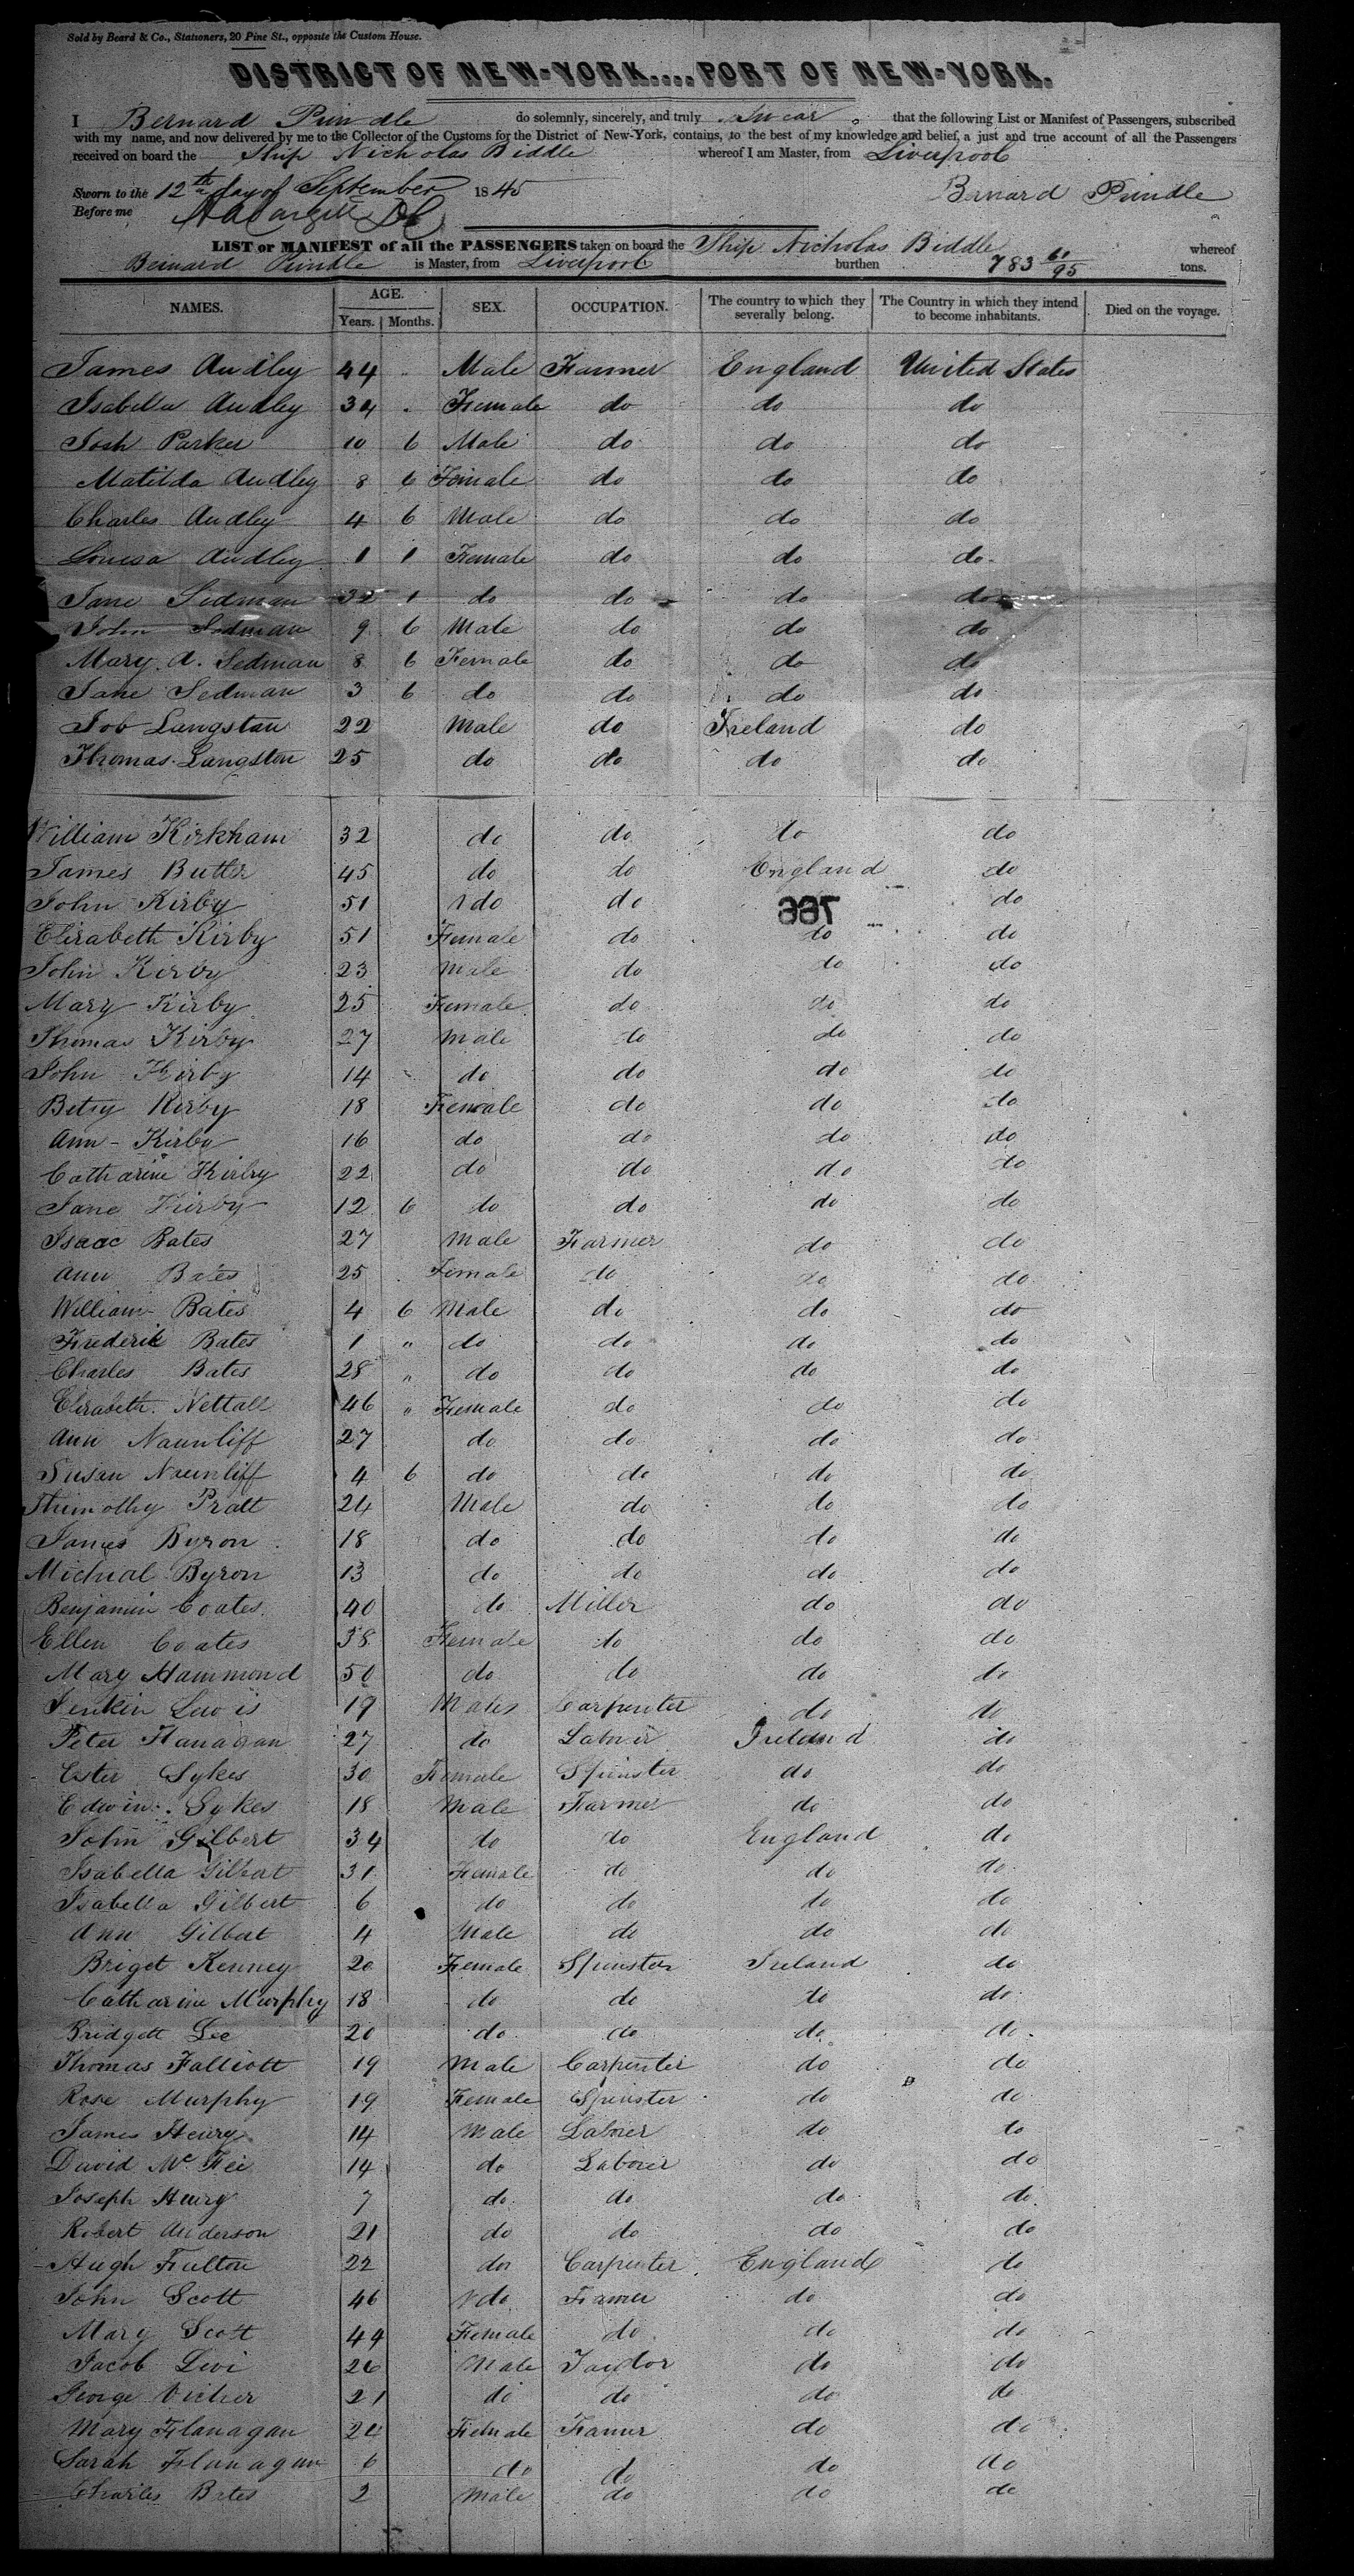 Sold by Beard & Co., Stationers, 20 Pine St., opposite the Custom House.
DISTRICT OF NEW-YORK....PORT OF NEW-YORK.
I Bernard Prindle do solemnly, sincerely, and truly Swear that the following List or Manifest of Passengers, subscribed
with my name, and now delivered by me to the Collector of the Customs for the District of New-York, contains, to the best of my knowledge and belief, a just and true account of all the Passengers
received on board the Ship Nicholas Biddle whereof I am Master, from Liverpool
Sworn to the 12th day of September 1845 Bernard Prindle
Before me
LIST or MANIFEST of all the PASSENGERS taken on board the Ship Nicholas Biddle whereof
Bernard Prindle is Master, from Liverpool burthen 783 61/95 tons.
NAMES. AGE. Years. Months. SEX. OCCUPATION. The country to which they severally belong. The Country in which they intend to become inhabitants. Died on the voyage.
James Audley 44 " Male Farmer England United States
Isabella Audley 34 " Female do do do
Josh Parker 10 6 Male do do do
Matilda Audley 8 6 Female do do do
Charles Audley 4 6 Male do do do
Louesa Audley 1 1 Female do do do
Jane Sedman 32 1 do do do do
John Sedman 9 6 Male do do do
Mary. A. Sedman 8 6 Female do do do
Jane Sedman 3 6 do do do do
Job Langston 22 Male do Ireland do
Thomas Langston 25 do do do do
William Kirkham 32 do do do do
James Butler 45 do do England do
John Kirby 51 do do do
766
Elizabeth Kirby 51 Female do do do
John Kirby 23 Male do do do
Mary Kirby 25 Female do do do
Thomas Kirby 27 Male do do do
John Kirby 14 do do do do
Betsy Kirby 18 Female do do do
Ann Kirby 16 do do do do
Catharine Kirby 22 do do do do
Jane Kirby 12 6 do do do do
Isaac Bates 27 Male Farmer do do
Ann Bates 25 Female do do do
William Bates 4 6 Male do do do
Frederik Bates 1 " do do do do
Charles Bates 28 " do do do do
Elizabeth. Nettall 46 " Female do do do
Ann Naunliff 27 do do do do
Susan Naunliff 4 6 do do do do
Thimothy Pratt 24 Male do do do
James Byron 18 do do do do
Micheal Byron 13 do do do do
Benjamin Coates 40 do Miller do do
Ellen Coates 38 Female do do do
Mary Hammond 50 do do do do
Jenkin Lewis 19 Males Carpenter do do
Peter Flanagan 27 do Laborer Ireland do
Ester Sykes 30 Female Spinster do do
Edwin Sykes 18 Male Farmer do do
John Gilbert 34 do do England do
Isabella Gilbert 31 Female do do do
Isabella Gilbert 6 do do do do
Ann Gilbert 4 Male do do do
Briget Kenney 20 Female Spinster Ireland do
Catharine Murphy 18 do do do do
Bridgett Lee 20 do do do do
Thomas Falliott 19 Male Carpenter do do
Rose Murphy 19 Female Spinster do do
James Henry 14 Male Laborer do do
David McFee 14 do Laborer do do
Joseph Henry 7 do do do do
Robert Anderson 21 do do do do
Hugh Fulton 22 do Carpenter England do
John Scott 46 do Farmer do do
Mary Scott 44 Female do do do
Jacob Levi 26 Male Taylor do do
George Vicher 21 do do do do
Mary Flanagan 24 Female Farmer do do
Sarah Flanagan 6 do do do do
Charles Bates 2 Male do do do